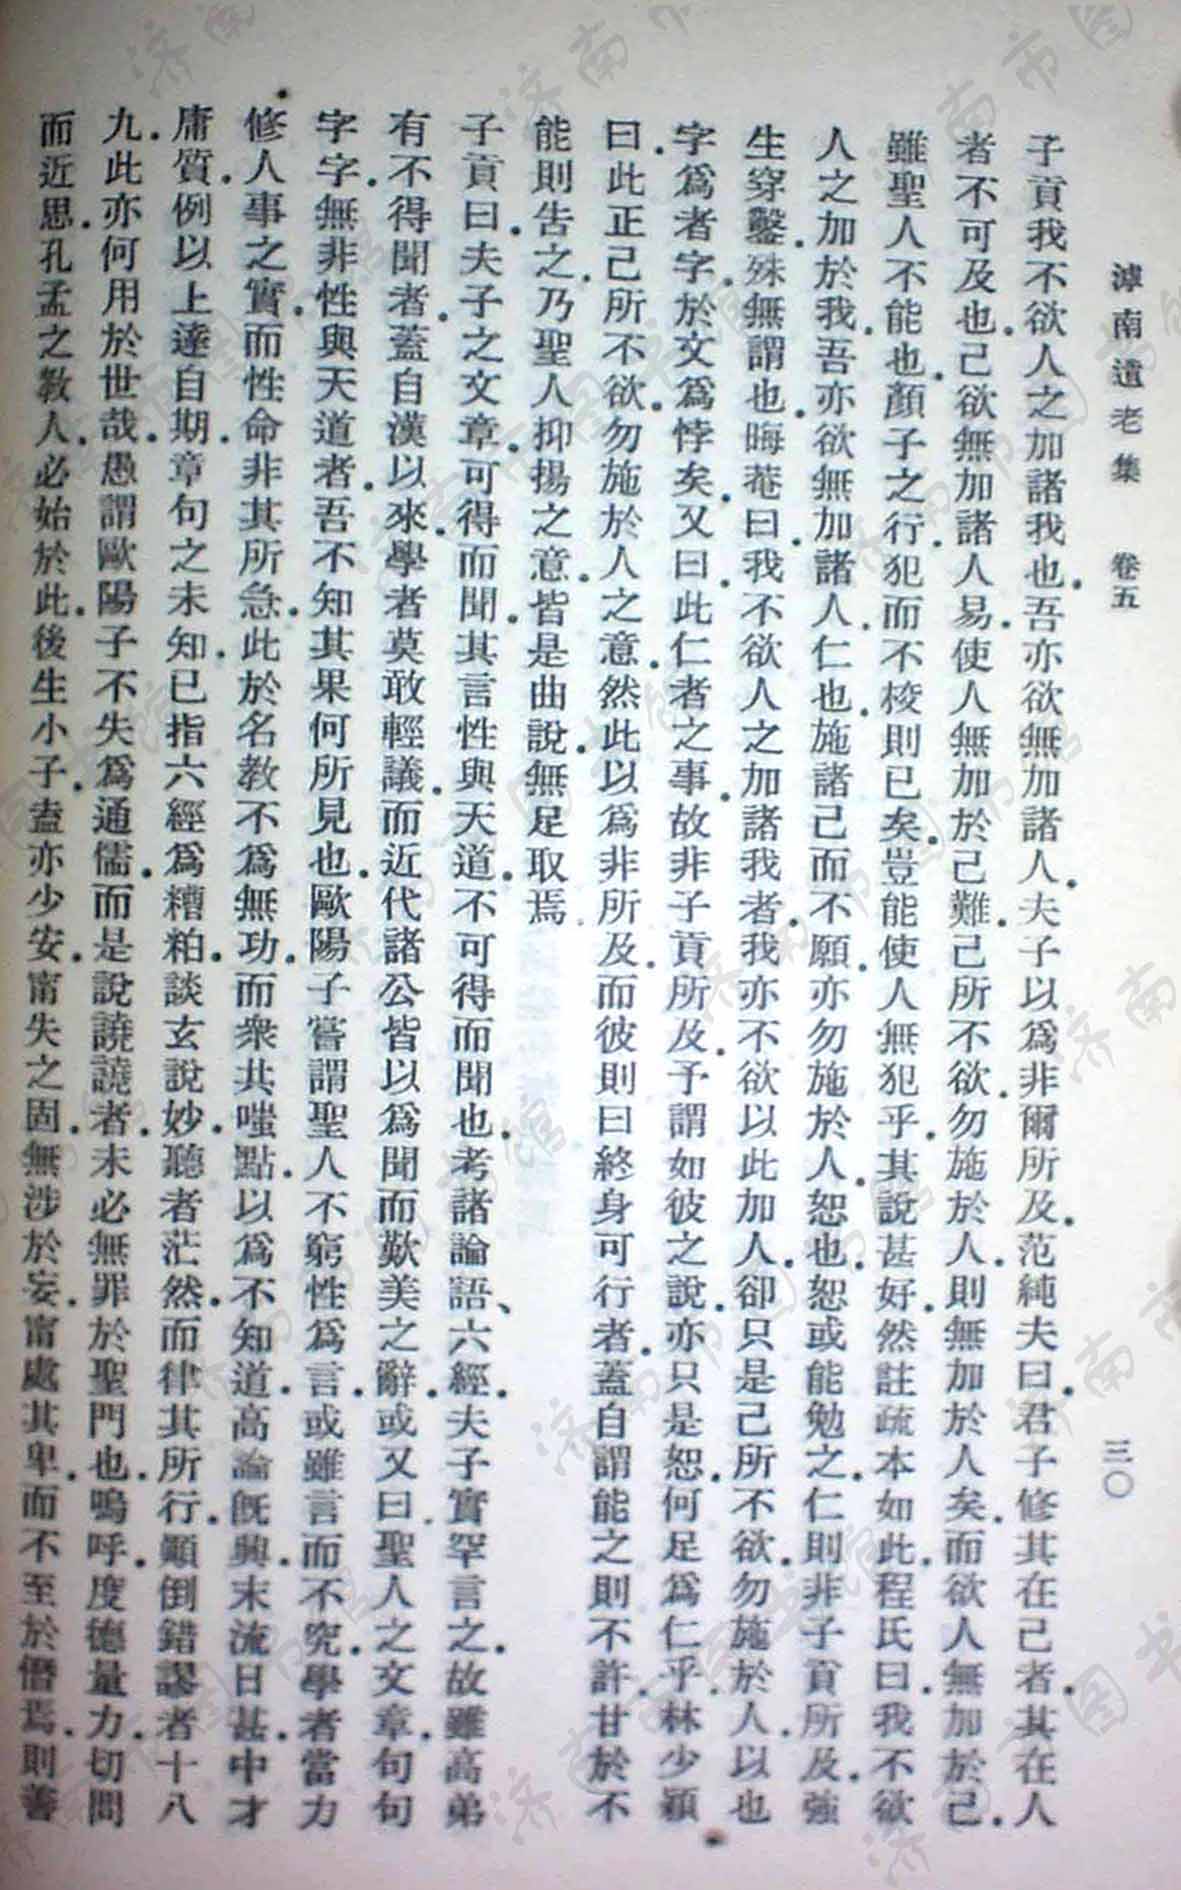 滹南遺老集 卷五 三〇
子貢我不欲人之加諸我也.吾亦欲無加諸人.夫子以爲非爾所及.范純夫曰.君子修其在己者.其在人
者不可及也.己欲無加諸人易.使人無加於己難.己所不欲.勿施於人.則無加於人矣.而欲人無加於己.
雖聖人不能也.顏子之行.犯而不校則已矣.豈能使人無犯乎.其說甚好.然註疏本如此.程氏曰.我不欲
人之加於我.吾亦欲無加諸人.仁也.施諸己而不願.亦勿施於人.恕也.恕或能勉之.仁則非子貢所及.強
生穿鑿.殊無謂也.晦菴曰.我不欲人之加諸我者.我亦不欲以此加人.卻只是己所不欲.勿施於人.以也
字爲者字.於文爲悖矣.又曰.此仁者之事.故非子貢所及.予謂如彼之說.亦只是恕.何足爲仁乎.林少穎
曰.此正己所不欲.勿施於人之意.然此以爲非所及.而彼則曰終身可行者.蓋自謂能之則不許.甘於不
能則告之.乃聖人抑揚之意.皆是曲說.無足取焉.
子貢曰.夫子之文章.可得而聞.其言性與天道.不可得而聞也.考諸論語、六經.夫子實罕言之.故雖高弟
有不得聞者.蓋自漢以來.學者莫敢輕議.而近代諸公皆以爲聞而歎美之辭.或又曰.聖人之文章.句句
字字.無非性與天道者.吾不知其果何所見也.歐陽子嘗謂聖人不窮性爲言.或雖言而不究.學者當力
修人事之實.而性命非其所急.此於名教不爲無功.而衆共嗤點.以爲不知道.高論旣興.末流日甚.中才
庸質.例以上達自期.章句之未知.已指六經爲糟粕.談玄說妙.聽者茫然.而律其所行.顚倒錯謬者十八
九.此亦何用於世哉.愚謂歐陽子不失爲通儒.而是說譊譊者.未必無罪於聖門也.嗚呼.度德量力.切問
而近思.孔孟之教人.必始於此.後生小子.盍亦少安.甯失之固.無涉於妄.甯處其卑.而不至於僭焉.則善